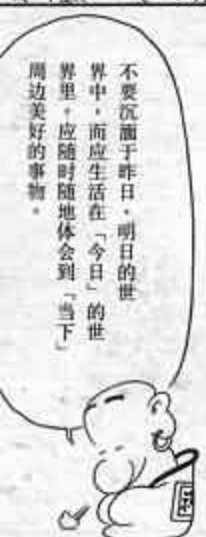 不要沉湎于昨日，明日的世
界中，而应生活在「今日」的世
界里。应随时随地体会到「当下」
周边美好的事物。